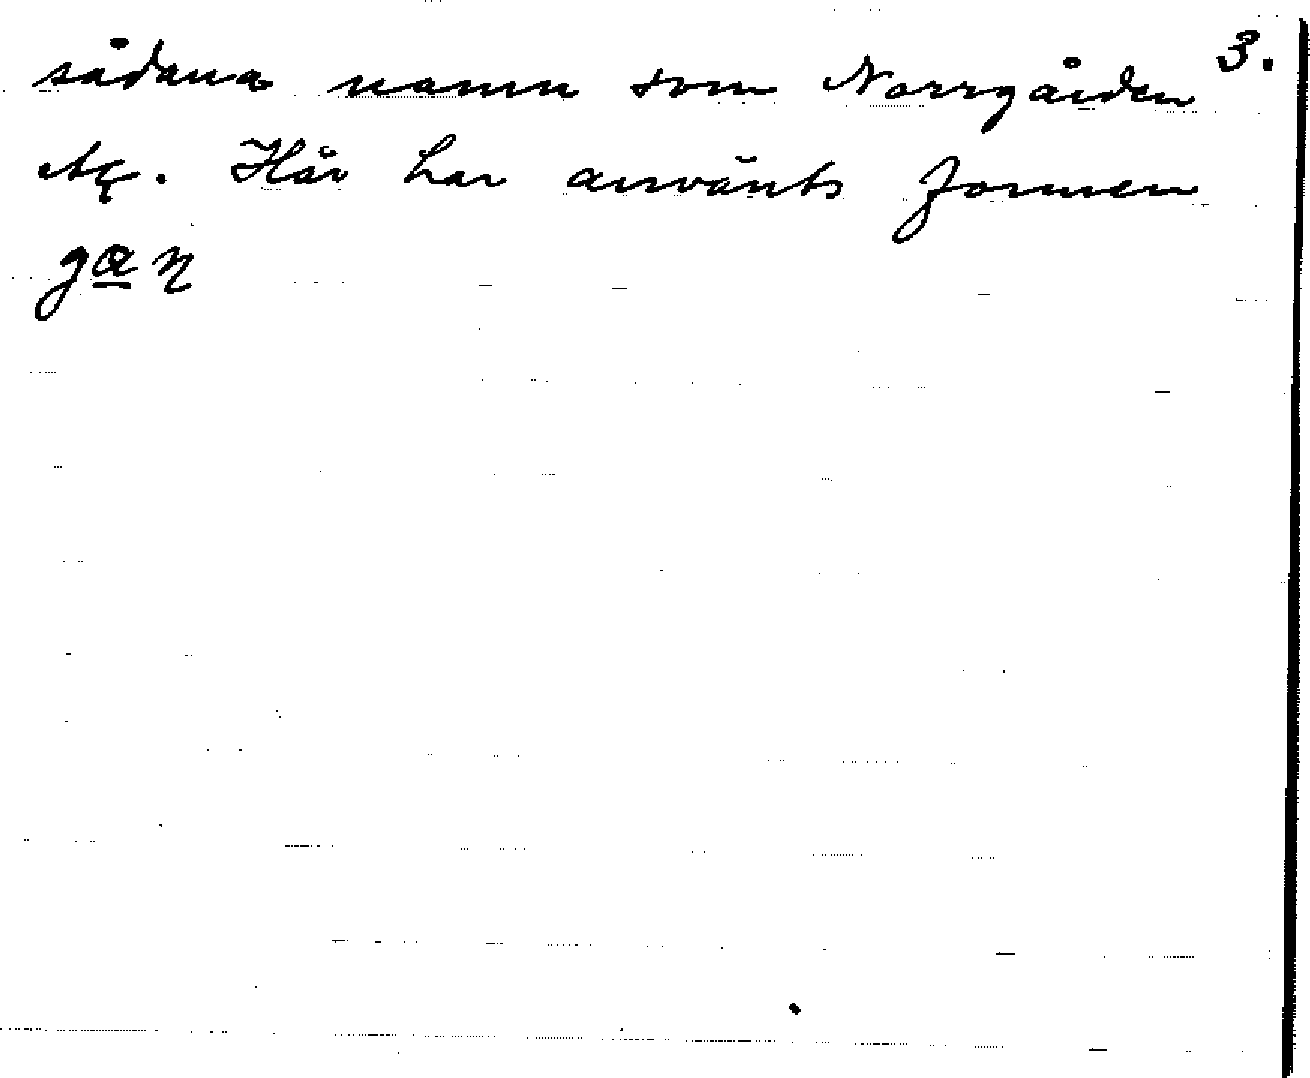 3.
sådana namn som Norrgården
etc. Här har använts formen
gan